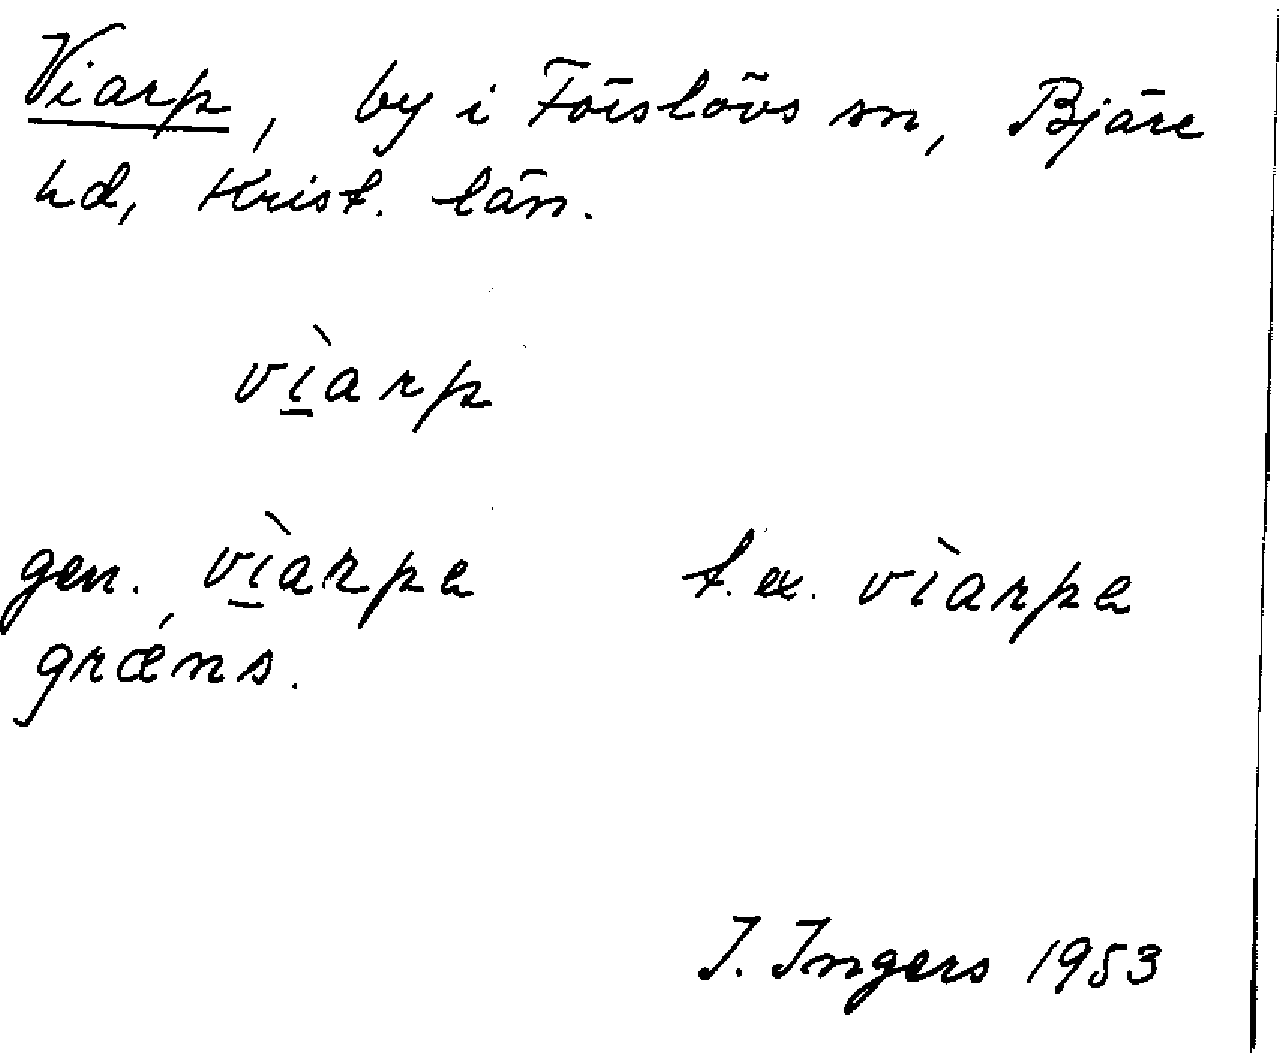 Viarp, by i Förslövs sn, Bjäre
hd, Krist. län.
vì̱arp
gen. vì̱arpa t. ex. vìarpa
grǽns.
I. Ingers 1953